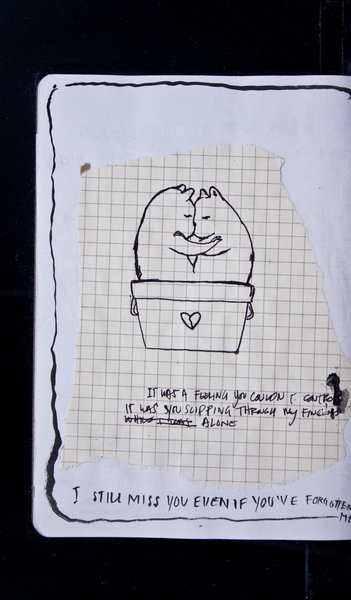 IT WAS A FEELING YOU COULDN'T CONTROL
IT WAS YOU SLIPPING THROUGH MY FINGERS
WHILE I WAS ALONE
I STILL MISS YOU EVEN IF YOU'VE FORGOTTEN
ME